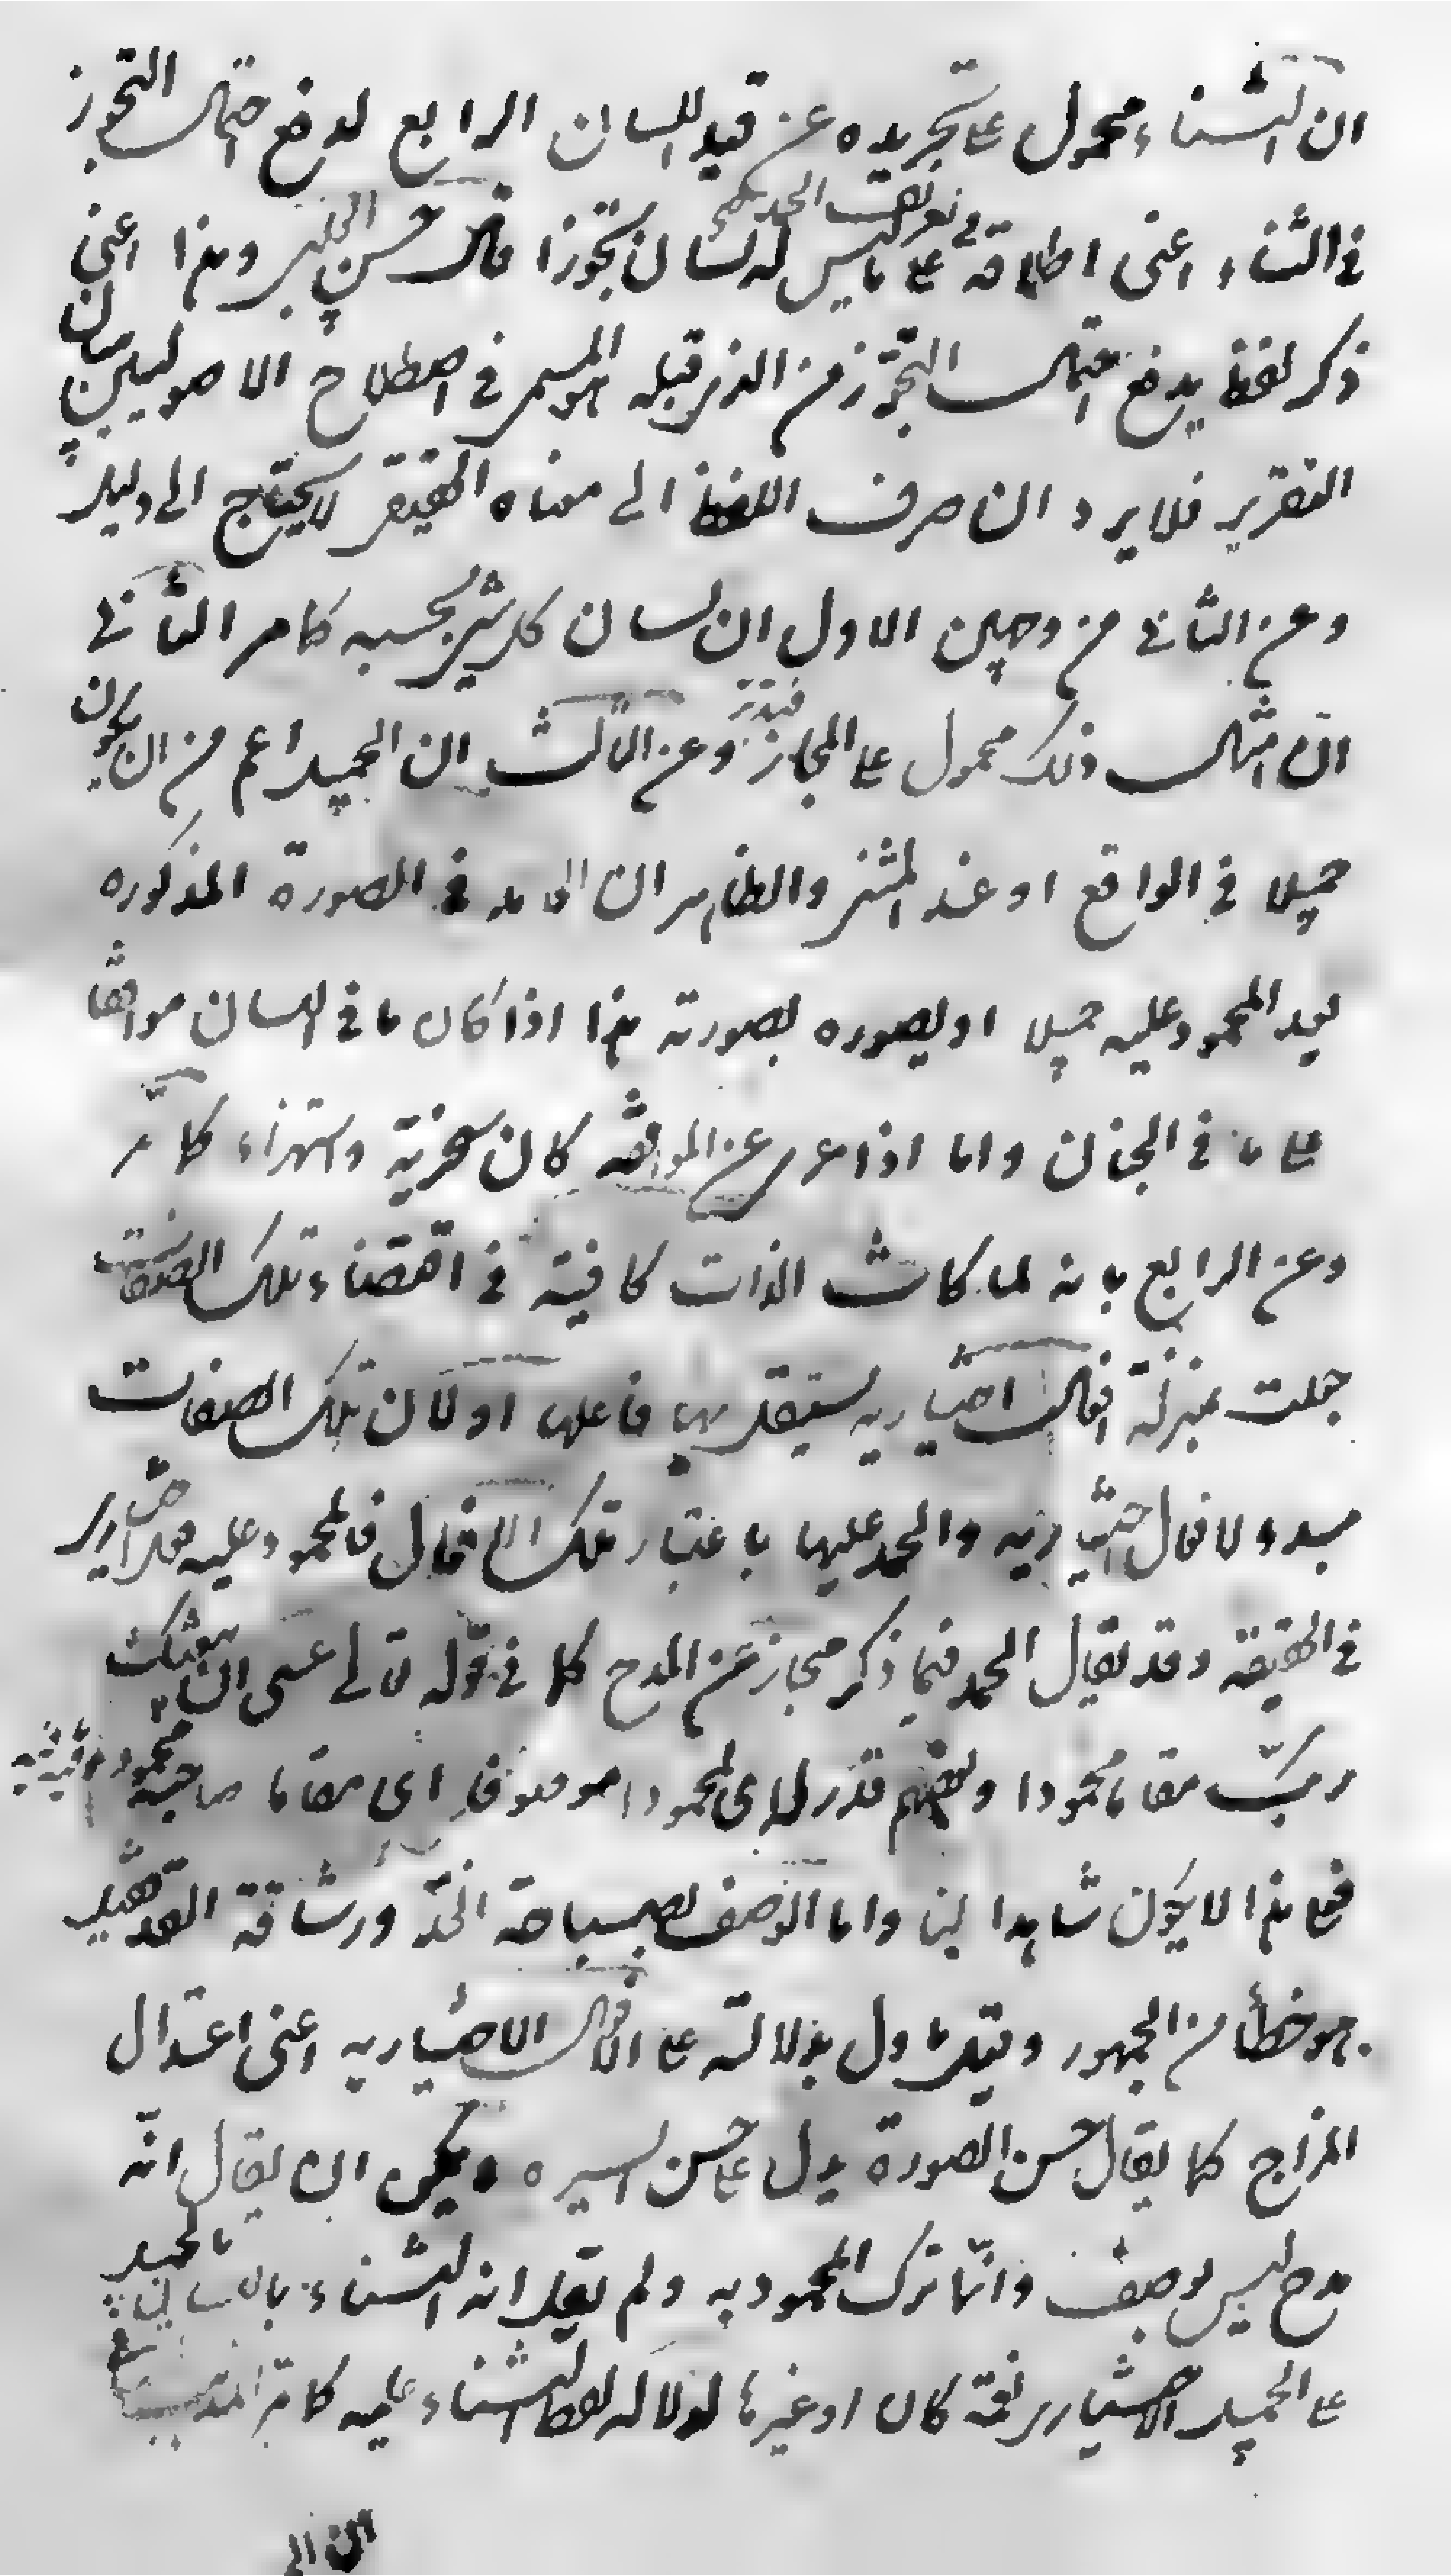 ان الثناء محمول على تجريده عن قيد اللسان الرابع لدفع احتمال التجوز
في الثناء اعنى اطلاقه على ما ليس له لسان تجوزا قال حسن الچلبي وهذا اعنى
في تعريف الحمد
ذكر لفظ يدفع احتمال التجوز من الذي قبله هو المسمى في اصطلاح الاصوليين ببيان
التقرير فلا يرد ان صرف اللفظ الى معناه الحقيقي لا يحتاج الى دليل
وعن الثاني من وجهين الاول ان لسان كل شيء بحسبه كما مر الثاني
ان امثال ذلك محمول على المجاز فتدبر وعن الثالث ان الجميل اعم من ان يكون
جميلا في الواقع او عند المثنى والظاهر ان الحامد في الصورة المذكوره
يعد المحمود عليه جميلا او يصوره بصورته هذا اذا كان ما في اللسان موافقا
على ما في الجنان واما اذا عرى عن الموافقه كان سخرية واستهزاء كما مر
وعن الرابع بانه لما كانت الذات كافية في اقتضاء تلك الصفات
جعلت بمنزلة افعال اختياريه يستقل بها فاعلها او لان تلك الصفات
مبدء لافعال اختياريه والحمد عليها باعتبار تلك الافعال فالمحمود عليه فعل اختياري
في الحقيقة وقد يقال الحمد فيما ذكر مجاز عن المدح كما في قوله تعالى عسى ان يبعثك
ربك مقاما محمودا وبعضهم قدر لهاى لمحمودا موصوفا اى مقاما صاحبه محمود فيه
فعلى هذا لا يكون شاهدا لنا واما الوصف بصباحة الخد ورشاقة القد فقيل
هو خطأ من الجمهور وقيل ماول بدلالته على الافعال الاختياريه اعنى اعتدال
المزاج كما يقال حسن الصورة يدل على حسن السيره ويمكن ان يقال انه
مدح ليس بوصف وانما ترك المحمود به ولم يقل انه الثناء باللسان بالجميل
على الجميل الاختياري نعمة كان او غيرها لدلالة لفظ الثناء عليه كما مر
ان الى